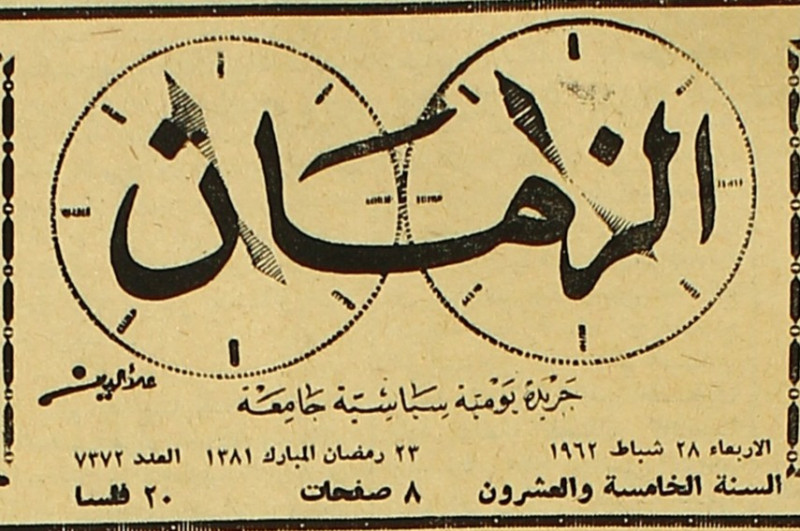 الزمان
جريدة يومية سياسية جامعة
علاء الدين
الاربعاء ٢٨ شباط ١٩٦٢ ٢٣ رمضان المبارك ١٣٨١ العدد ٧٣٧٢
السنة الخامسة والعشرون ٨ صفحات ٢٠ فلسا